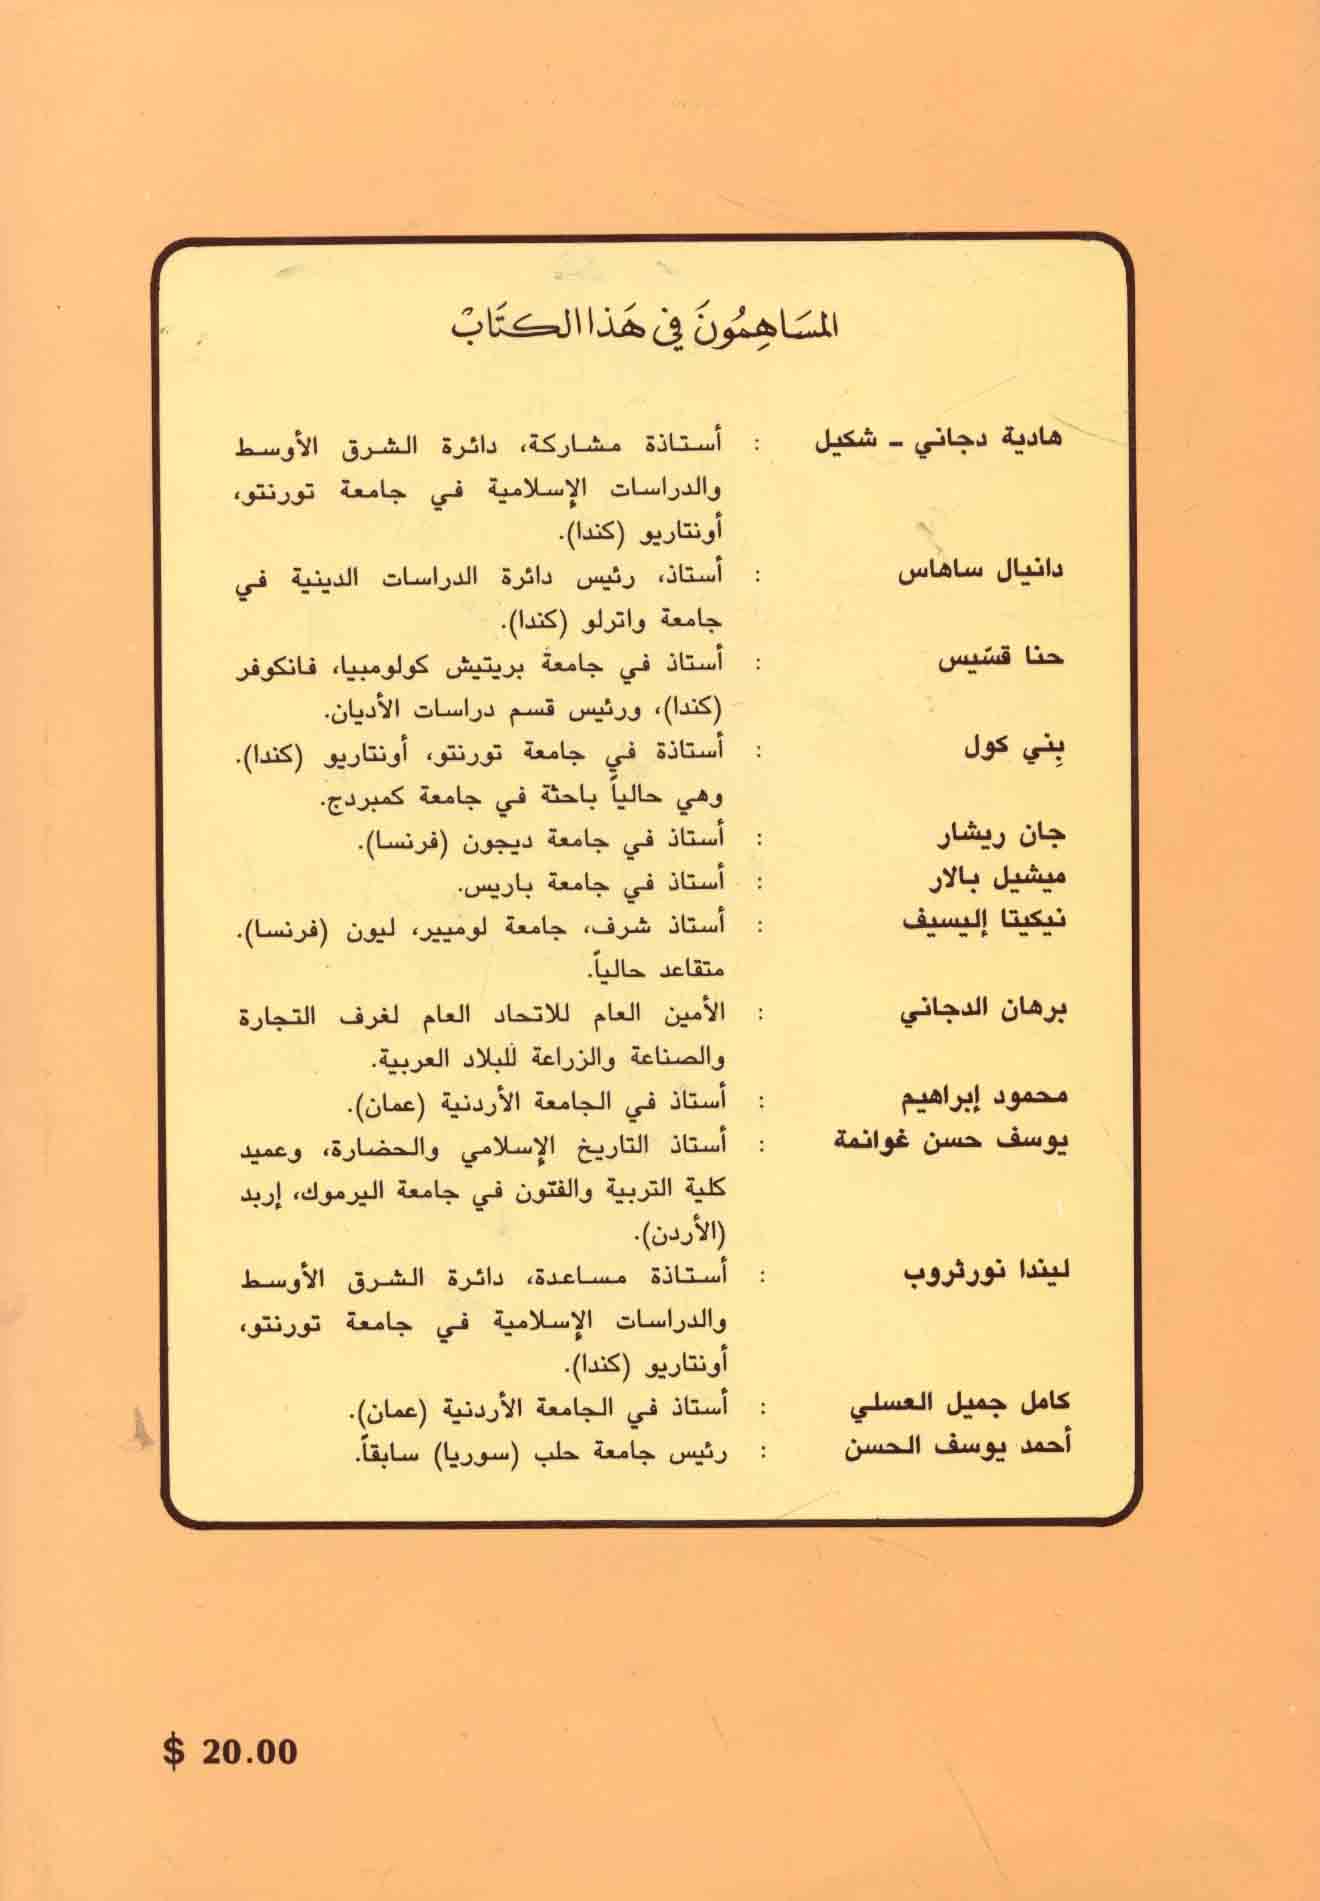 المسَاهِمُونَ في هَذا الكتَابْ
هادية دجاني ـ شكيل : أستاذة مشاركة، دائرة الشرق الأوسط
والدراسات الإسلامية في جامعة تورنتو،
أونتاريو (كندا).
دانيال ساهاس : أستاذ، رئيس دائرة الدراسات الدينية في
جامعة واترلو (كندا).
حنا قسّيس : أستاذ في جامعة بريتيش كولومبيا، فانكوفر
(كندا)، ورئيس قسم دراسات الأديان.
بِني كول : أستاذة في جامعة تورنتو، أونتاريو (كندا).
وهي حالياً باحثة في جامعة كمبردج.
جان ريشار : أستاذ في جامعة ديجون (فرنسا).
ميشيل بالار : أستاذ في جامعة باريس.
نيكيتا إليسيف : أستاذ شرف، جامعة لوميير، ليون (فرنسا).
متقاعد حالياً.
برهان الدجاني : الأمين العام للاتحاد العام لغرف التجارة
والصناعة والزراعة للبلاد العربية.
محمود إبراهيم : أستاذ في الجامعة الأردنية (عمان).
يوسف حسن غوانمة : أستاذ التاريخ الإسلامي والحضارة، وعميد
كلية التربية والفنون في جامعة اليرموك، إربد
(الأردن).
ليندا نورثروب : أستاذة مساعدة، دائرة الشرق الأوسط
والدراسات الإسلامية في جامعة تورنتو،
أونتاريو (كندا).
كامل جميل العسلي : أستاذ في الجامعة الأردنية (عمان).
أحمد يوسف الحسن : رئيس جامعة حلب (سوريا) سابقاً.
$ 20.00